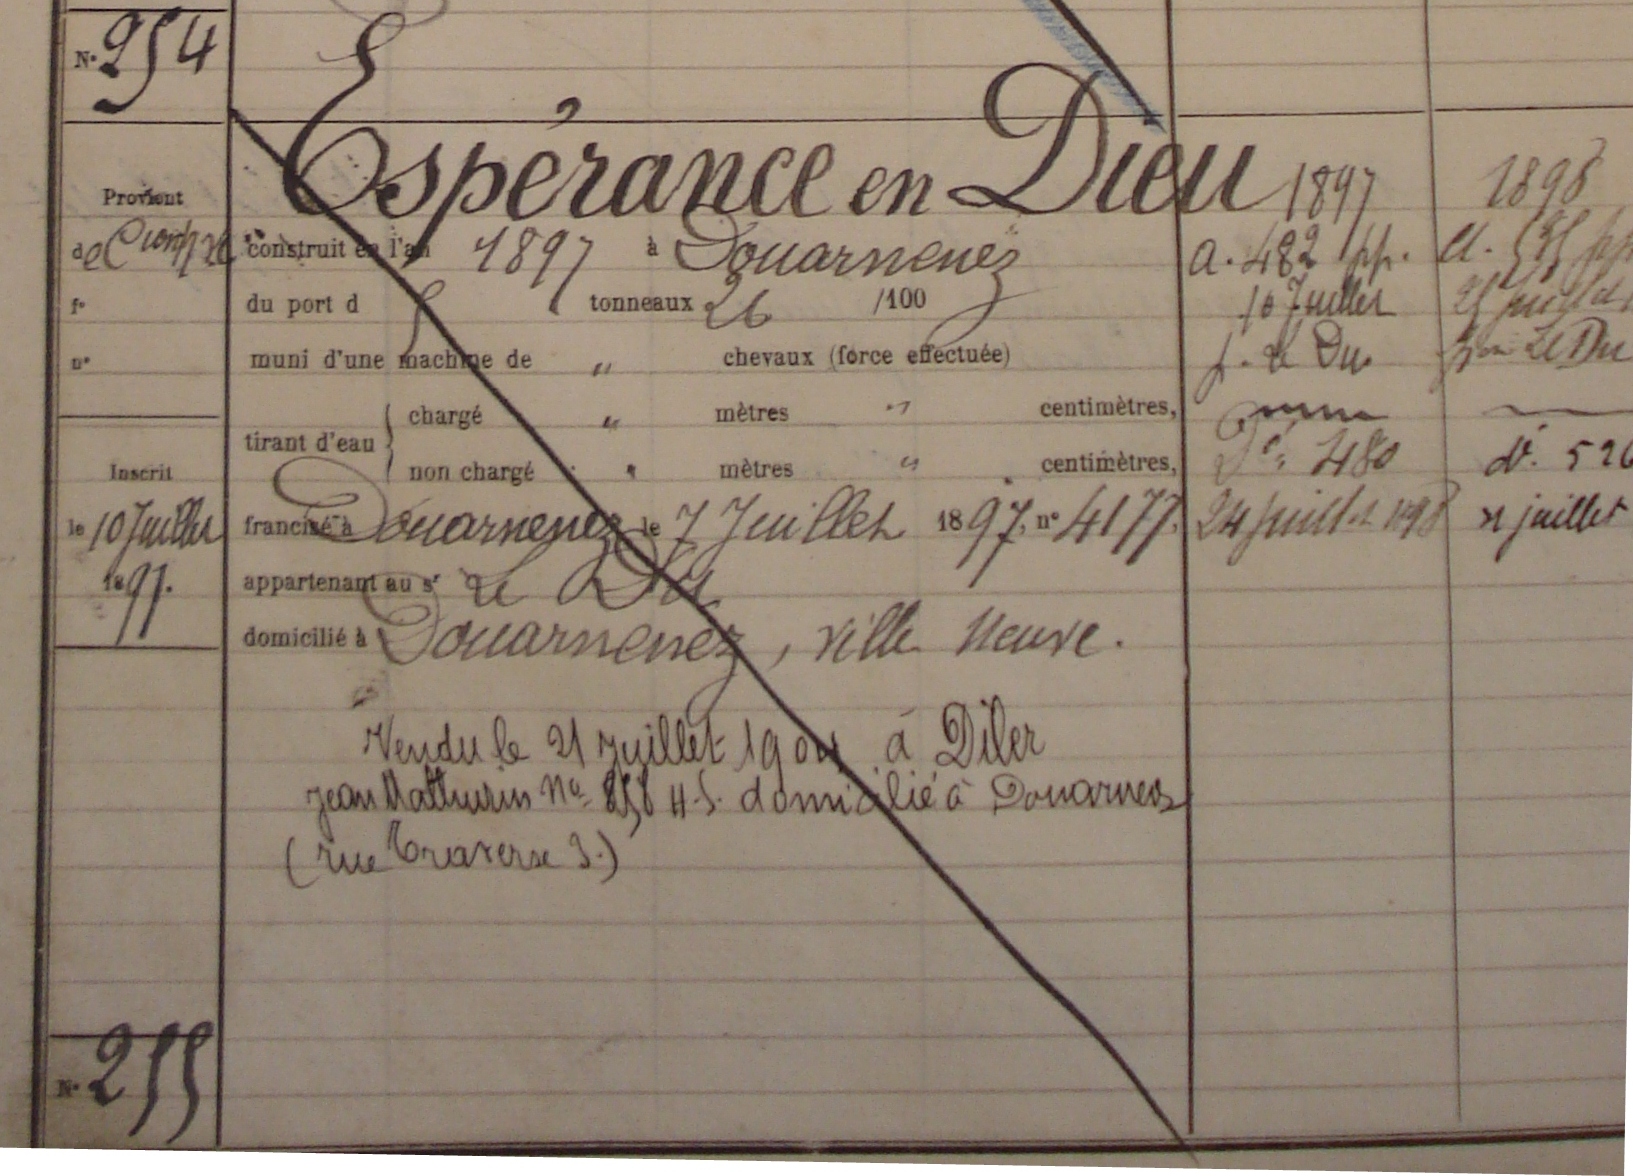 N° 254
Espérance en Dieu
Provient
de
f°
n°
Inscrit
le 10 Juillet
1897.
construit en l'an 1897 à Douarnenez
du port d 5 tonneaux 26 /100
muni d'une machine de " chevaux (force effectuée)
tirant d'eau
chargé " mètres " centimètres,
non chargé " mètres " centimètres,
francisé à Douarnenez le 7 Juillet 1897, n° 4177.
appartenant au sr Le Du
domicilié à Douarnenez, ville Neuve.
Vendu le 21 juillet à Diler
Jean Mathurin No 858 H.S. domicilié à Douarnenez
(rue Traverse 3.)
1897
a. 482 pp.
10 Juillet
p. Le Du
Dt: 480
24 juillet 1898
1898
a. pp
juillet
Le Du
d. 526
juillet
N° 255